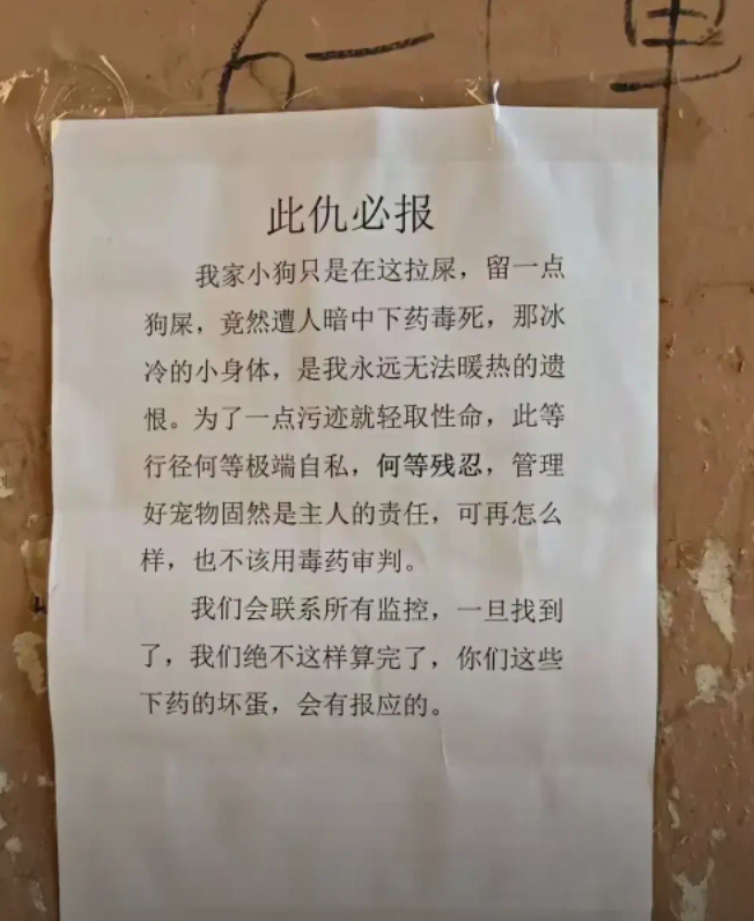 6一1里
此仇必报
我家小狗只是在这拉屎，留一点
狗屎，竟然遭人暗中下药毒死，那冰
冷的小身体，是我永远无法暖热的遗
恨。为了一点污迹就轻取性命，此等
行径何等极端自私，何等残忍，管理
好宠物固然是主人的责任，可再怎么
样，也不该用毒药审判。
我们会联系所有监控，一旦找到
了，我们绝不这样算完了，你们这些
下药的坏蛋，会有报应的。